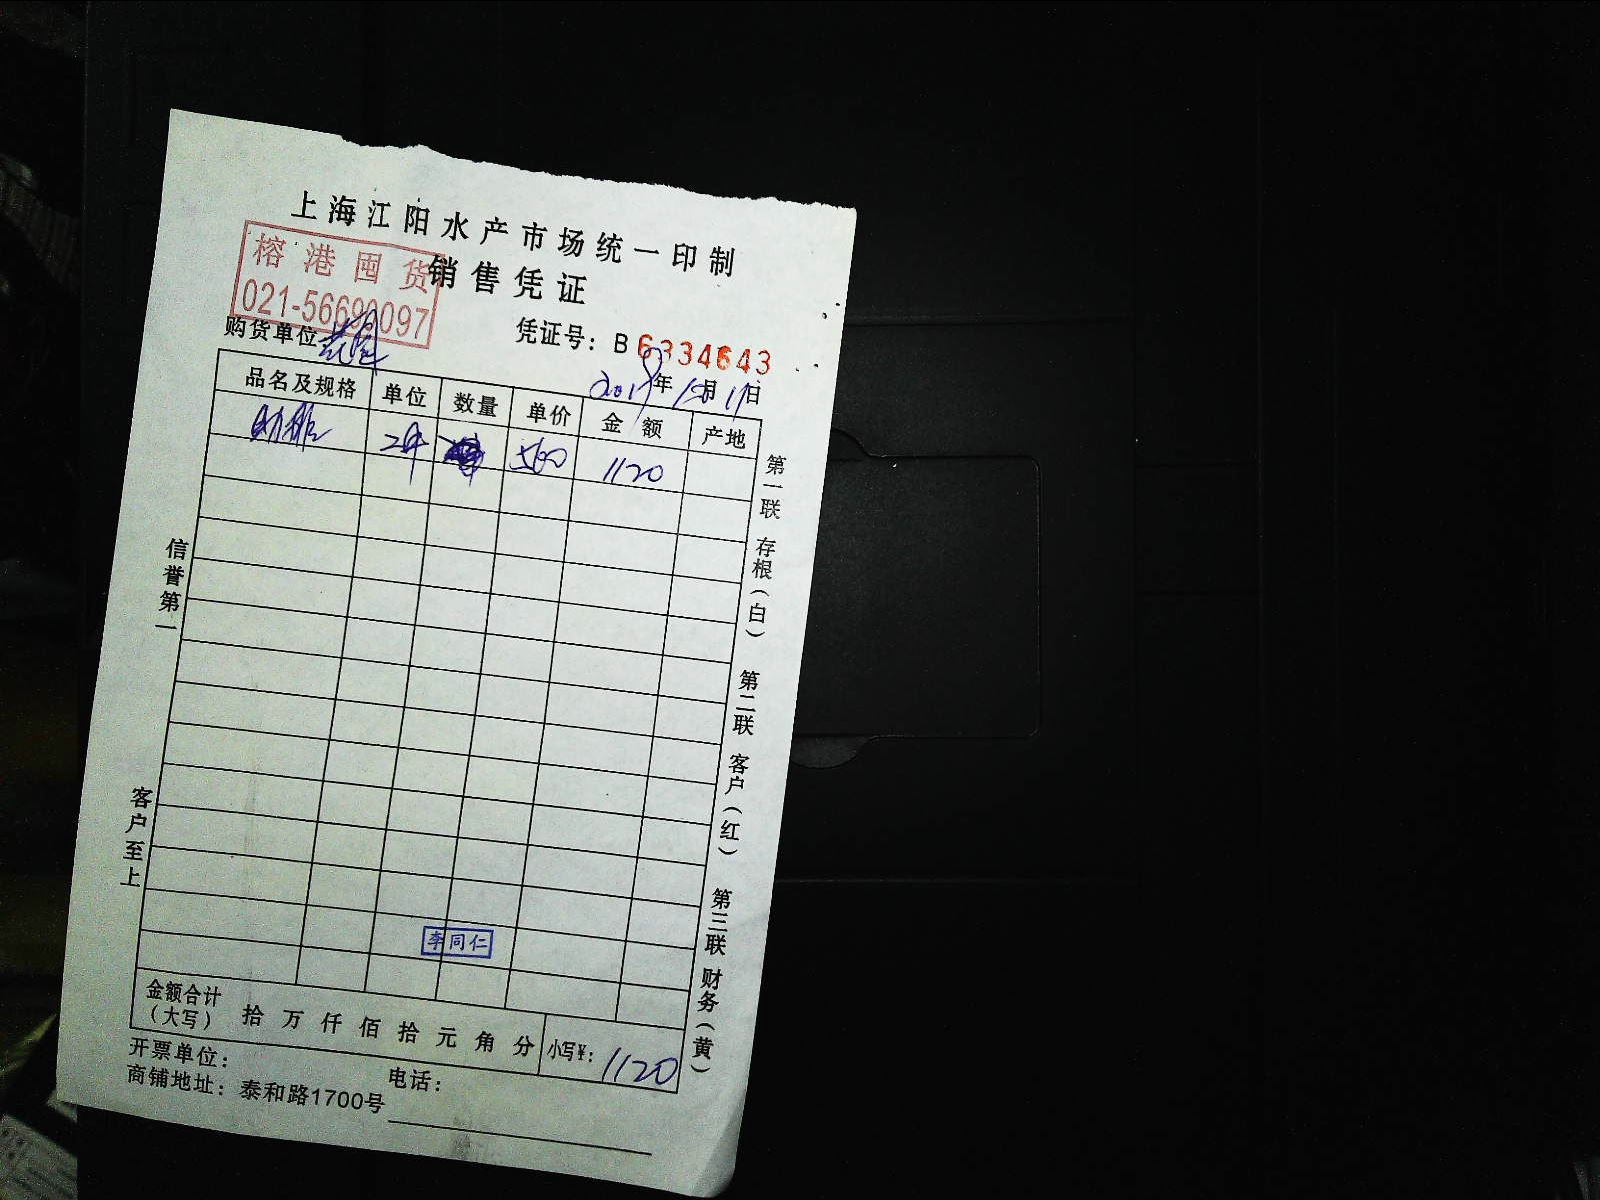 上海江阳水产市场统一印制
销售凭证
榕港囤货
021-56690097
购货单位
凭证号：B 6334643
年 月 日
品名及规格 单位 数量 单价 金额 产地
2件 560 1120
信誉第一
客户至上
第一联 存根（白） 第二联 客户（红） 第三联 财务（黄）
李同仁
金额合计（大写） 拾 万 仟 佰 拾 元 角 分 小写¥：1120
开票单位：
电话：
商铺地址：泰和路1700号